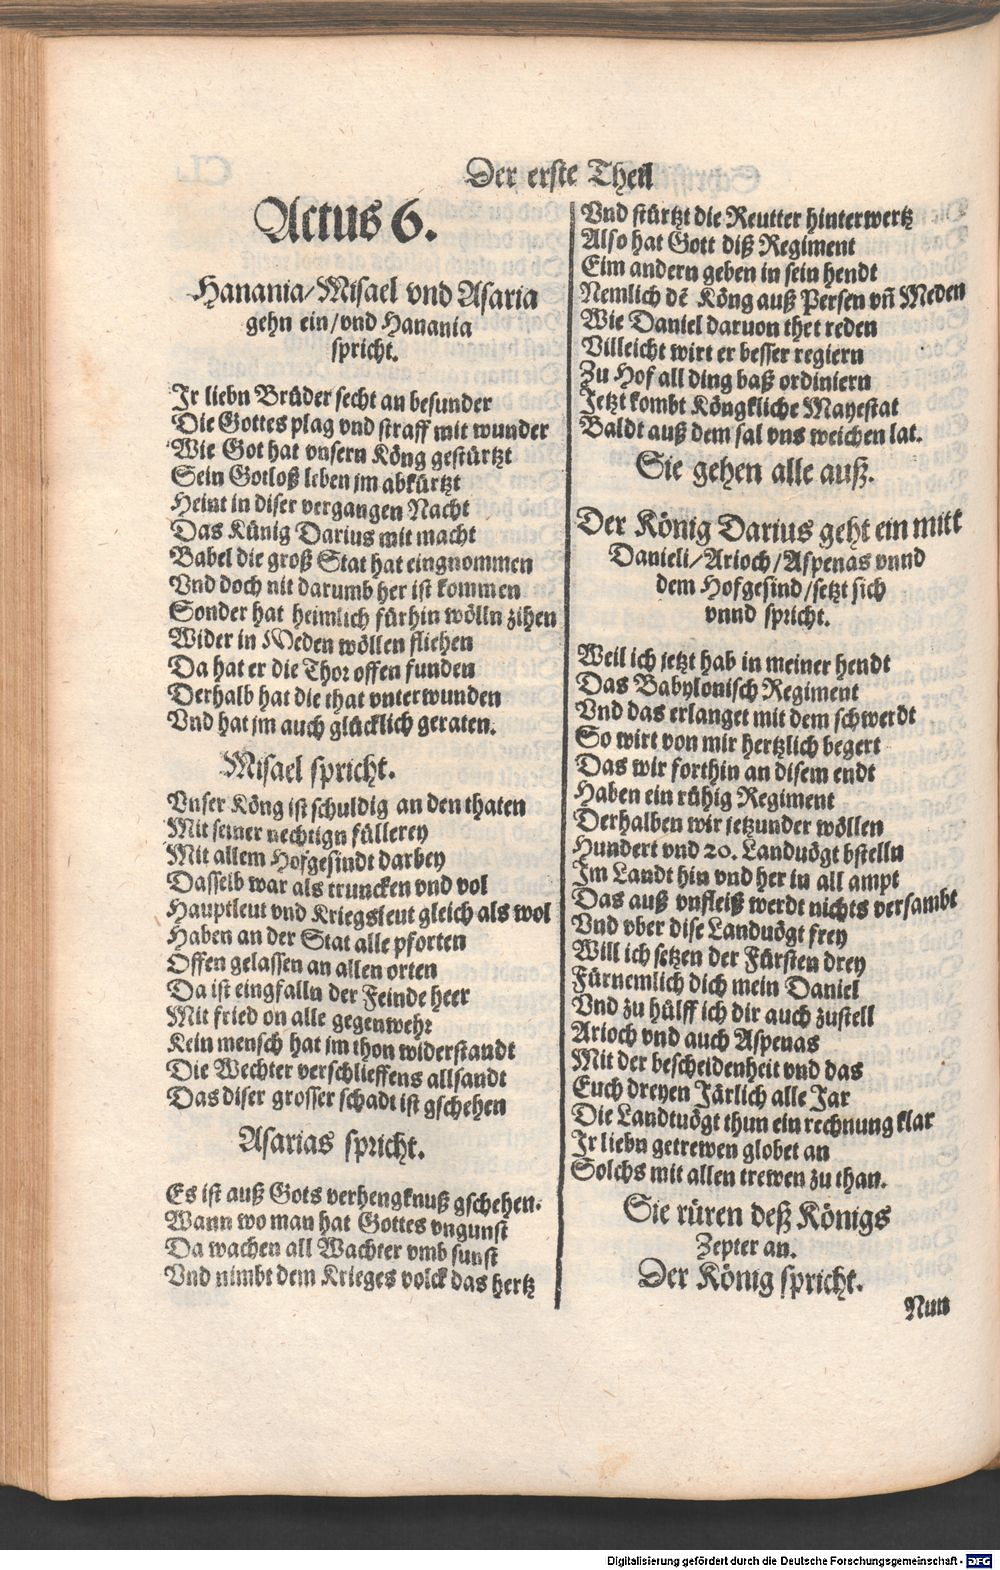 Der erste Theil
Actus 6.
Hanania/Misael vnd Asaria
gehn ein/vnd Hanania
spricht.
Ir liebn Brüder secht an besunder
Die Gottes plag vnd straff mit wunder
Wie Got hat vnsern Köng gestürtzt
Sein Gotloß leben jm abkürtzt
Heint in diser vergangen Nacht
Das Künig Darius mit macht
Babel die groß Stat hat eingnommen
Vnd doch nit darumb her ist kommen
Sonder hat heimlich fürhin wölln zihen
Wider in Meden wöllen fliehen
Da hat er die Thor offen funden
Derhalb hat die that vnterwunden
Vnd hat jm auch glücklich geraten.
Misael spricht.
Vnser Köng ist schuldig an den thaten
Mit seiner nechtign füllerey
Mit allem Hofgesindt darbey
Dasselb war als truncken vnd vol
Hauptleut vnd Kriegsleut gleich als wol
Haben an der Stat alle pforten
Offen gelassen an allen orten
Da ist eingfalln der Feinde heer
Mit fried on alle gegenwehr
Kein mensch hat im thon widerstandt
Die Wechter verschlieffens allsandt
Das diser grosser schadt ist gschehen
Asarias spricht.
Es ist auß Gots verhengknuß gschehen.
Wann wo man hat Gottes vngunst
Da wachen all Wachter vmb sunst
Vnd nimbt dem Krieges volck das hertz
Vnd stürtzt die Reutter hinterwertz
Also hat Gott diß Regiment
Eim andern geben in sein hendt
Nemlich dē Köng auß Persen vñ Meden
Wie Daniel daruon thet reden
Villeicht wirt er besser regiern
Zu Hof all ding baß ordiniern
Jetzt kombt Köngkliche Mayestat
Baldt auß dem sal vns weichen lat.
Sie gehen alle auß.
Der König Darius geht ein mitt
Danieli/Arioch/Aspenas vnnd
dem Hofgesind/setzt sich
vnnd spricht.
Weil ich jetzt hab in meiner hendt
Das Babylonisch Regiment
Vnd das erlanget mit dem schwerdt
So wirt von mir hertzlich begert
Das wir forthin an disem endt
Haben ein rühig Regiment
Derhalben wir jetzunder wöllen
Hundert vnd 20. Landuögt bstelln
Im Landt hin vnd her in all ampt
Das auß vnfleiß werdt nichts versambt
Vnd vber dise Landuögt frey
Will ich setzen der Fürsten drey
Fürnemlich dich mein Daniel
Vnd zu hülff ich dir auch zustell
Arioch vnd auch Aspenas
Mit der bescheidenheit vnd das
Euch dreyen Järlich alle Jar
Die Landtuögt thun ein rechnung klar
Ir liebn getrewen globet an
Solchs mit allen trewen zu than.
Sie rüren deß Königs
Zepter an.
Der König spricht.
Nun
Digitalisierung gefördert durch die Deutsche Forschungsgemeinschaft - DFG